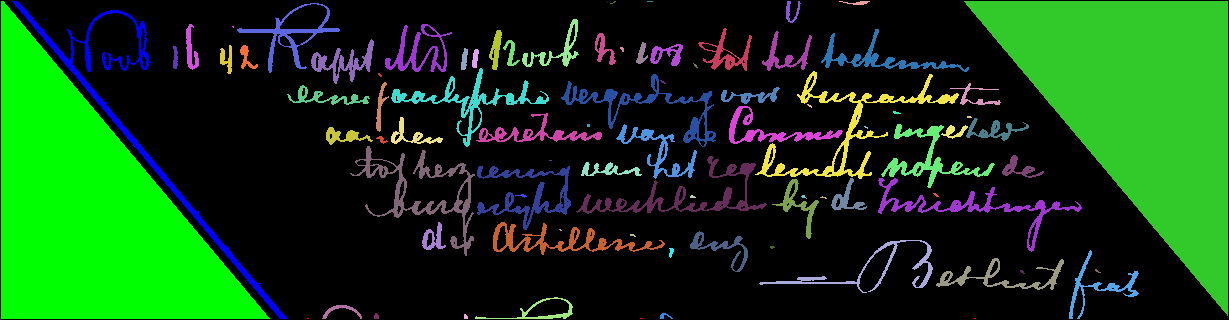 Noob 16 42 Rappt MD 11 Noob N. 108. tot het toekennen
eener jaarlijksche vergoeding voor bureaukosten
aan den Secretaris van de Commissie ingesteld
tot herziening van het reglement nopens de
burgerlijke werklieden bij de Inrichtingen
der Artillerie, enz.
— Besluit fiat